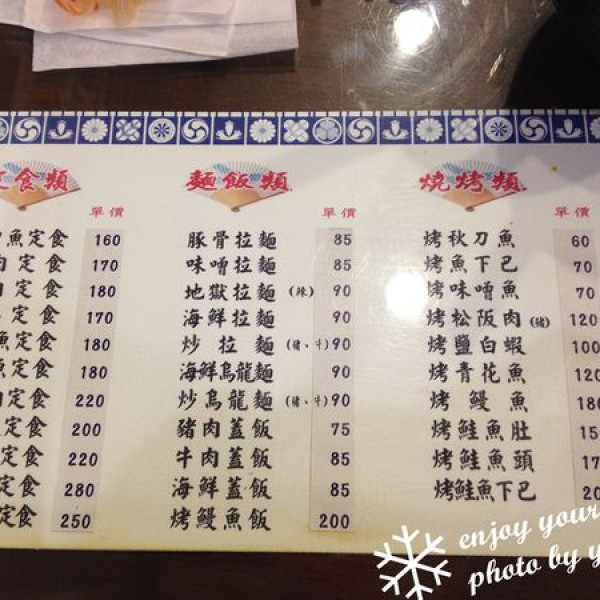 食類
單價
魚定食 160
定食 170
定食 180
定食 170
定食 180
定食 180
定食 220
定食 200
定食 220
定食 280
定食 250
麵飯類
單價
豚骨拉麵 85
味噌拉麵 85
地獄拉麵(辣) 90
海鮮拉麵 90
炒拉麵(豬、牛) 90
海鮮烏龍麵 90
炒烏龍麵(豬、牛) 90
豬肉蓋飯 75
牛肉蓋飯 85
海鮮蓋飯 85
烤鰻魚飯 200
燒烤類
單價
烤秋刀魚 60
烤魚下巴 70
烤味噌魚 70
烤松阪肉(豬) 120
烤鹽白蝦 100
烤青花魚 120
烤鰻魚 180
烤鮭魚肚
烤鮭魚頭
烤鮭魚下巴
enjoy your
photo by